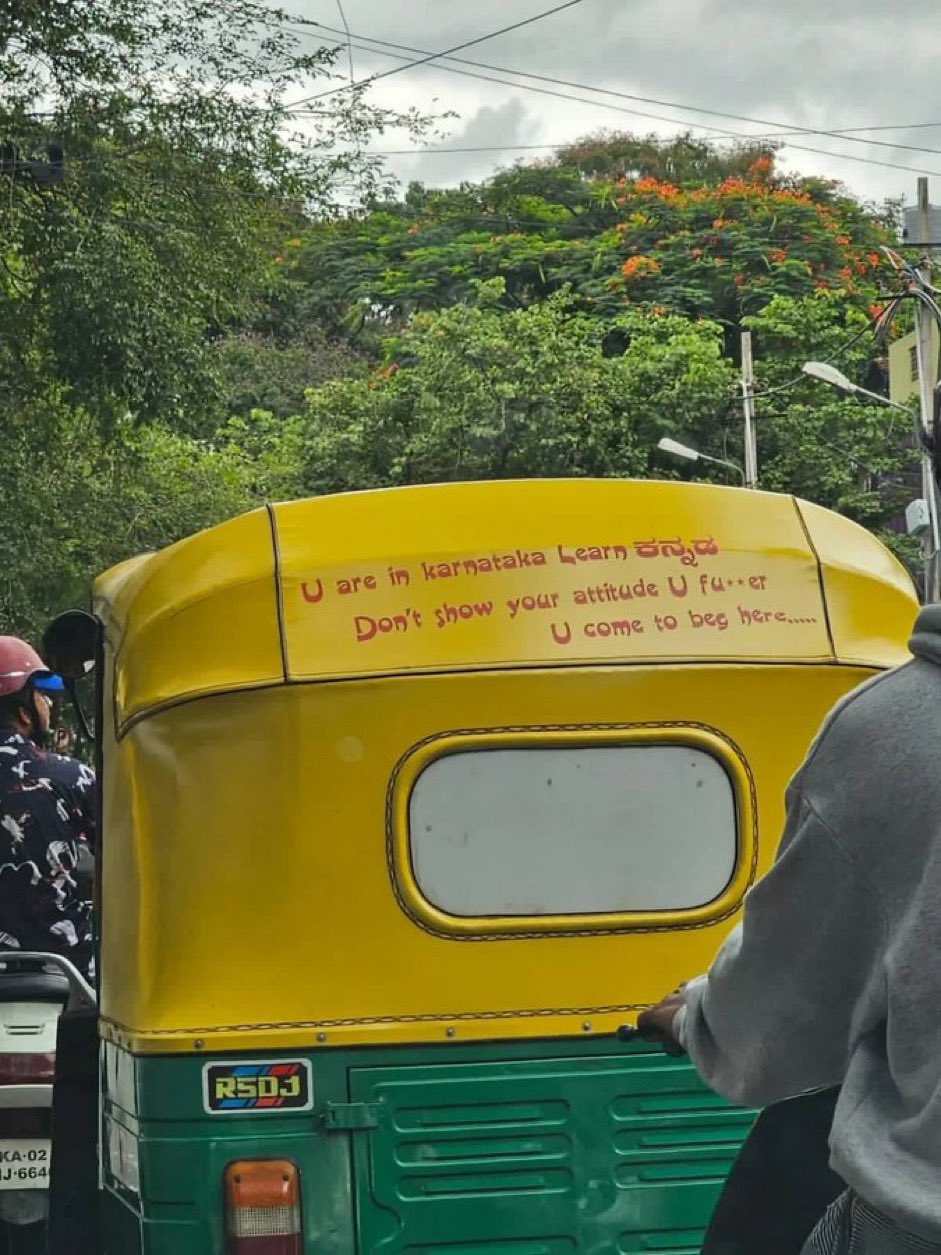 U are in karnataka Learn ಕನ್ನಡ
Don't show your attitude U fu**er
U come to beg here.....
RSDJ
KA-02